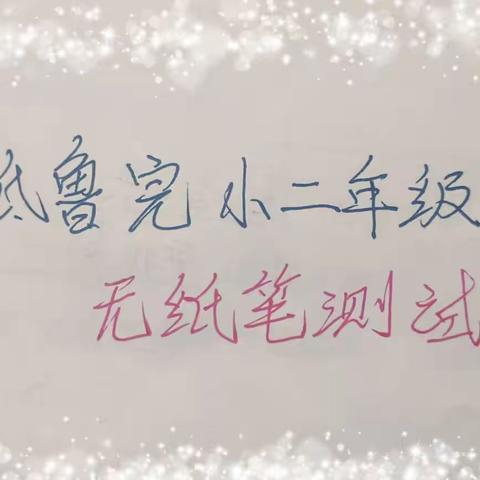 鲁完小二年级
无纸笔测试